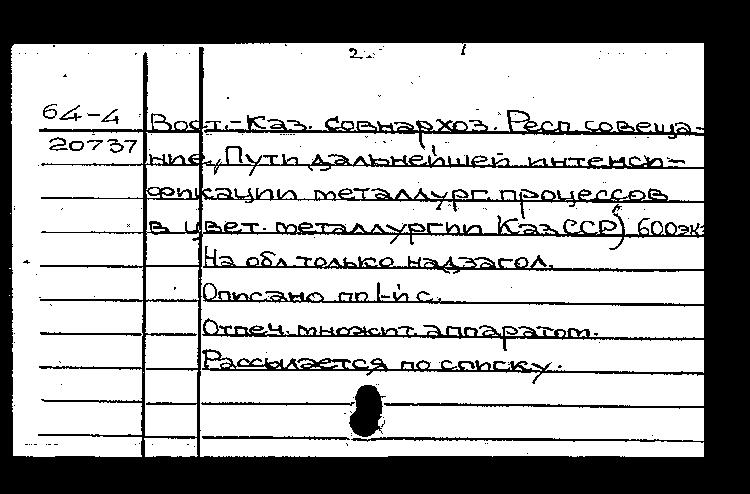 2
64-4
20737
Вост.-Каз. совнархоз. Респ. совеща-
ние "Пути дальнейшей интенси-
фикации металлург. процессов
в цвет. металлургии КазССР") 600экз
На обл. только надзагол.
Описано по 1-й с.
Отпеч. множит. аппаратом.
Рассылается по списку.